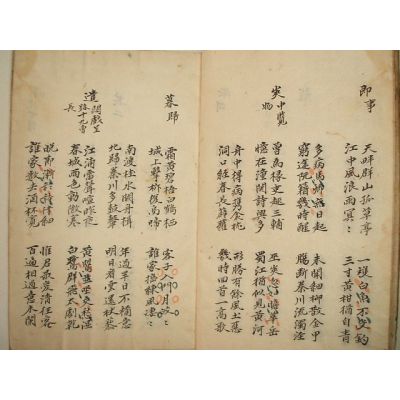 即事
天畔群山孤草亭
江中風浪雨冥〻
一雙白魚不受釣
三寸黄柑猶自青
多病馬卿無日起
窮途阮籍幾時醒
未聞細柳散金甲
腸斷秦川流濁涇
峽中覽物
曾為掾吏趨三輔
憶在潼関詩興多
巫峽忽如瞻華岳
蜀江猶似見黄河
舟中得病移衾枕
洞口經春長薜蘿
形勝有餘風土惡
幾時回首一高歌
暮歸
霜黄碧梧白鶴栖
城上擊柝復烏啼
客子入門月皎〻
誰家搗練風凄〻
南渡桂水闕舟楫
北歸秦川多鼓鼙
年過半百不稱意
明日看雲還杖藜
遣悶戲呈
路十九曹長
江浦雷聲喧昨夜
春城雨色動微寒
黄鶯並坐交愁濕
白鷺群飛太劇乾
晩節漸於詩律細
誰家數去酒杯寛
惟君最愛清狂客
百遍相過意未闌